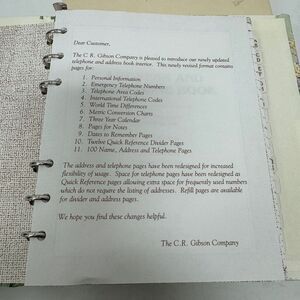 Dear Customer,
The C. R. Gibson Company is pleased to introduce our newly updated
telephone and address book interior. This newly revised format contains
pages for:
1. Personal Information
2. Emergency Telephone Numbers
3. Telephone Area Codes
4. International Telephone Codes
5. World Time Differences
6. Metric Conversion Charts
7. Three Year Calendar
8. Pages for Notes
9. Dates to Remember Pages
10. Twelve Quick Reference Divider Pages
11. 100 Name, Address and Telephone Pages
The address and telephone pages have been redesigned for increased
flexibility of usage. Space for telephone pages have been redesigned as
Quick Reference pages allowing extra space for frequently used numbers
which do not require the listing of addresses. Refill pages are available
for divider and address pages.
We hope you find these changes helpful.
The C.R. Gibson Company